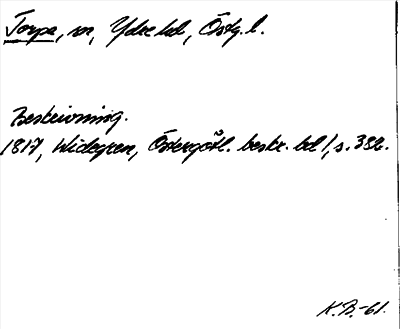 Torpa, sn, Ydre hd, Östg. l.
Beskrivning.
1817, Widegren, Östergötl. beskr. bd 1, s. 382.
K.B.-61.